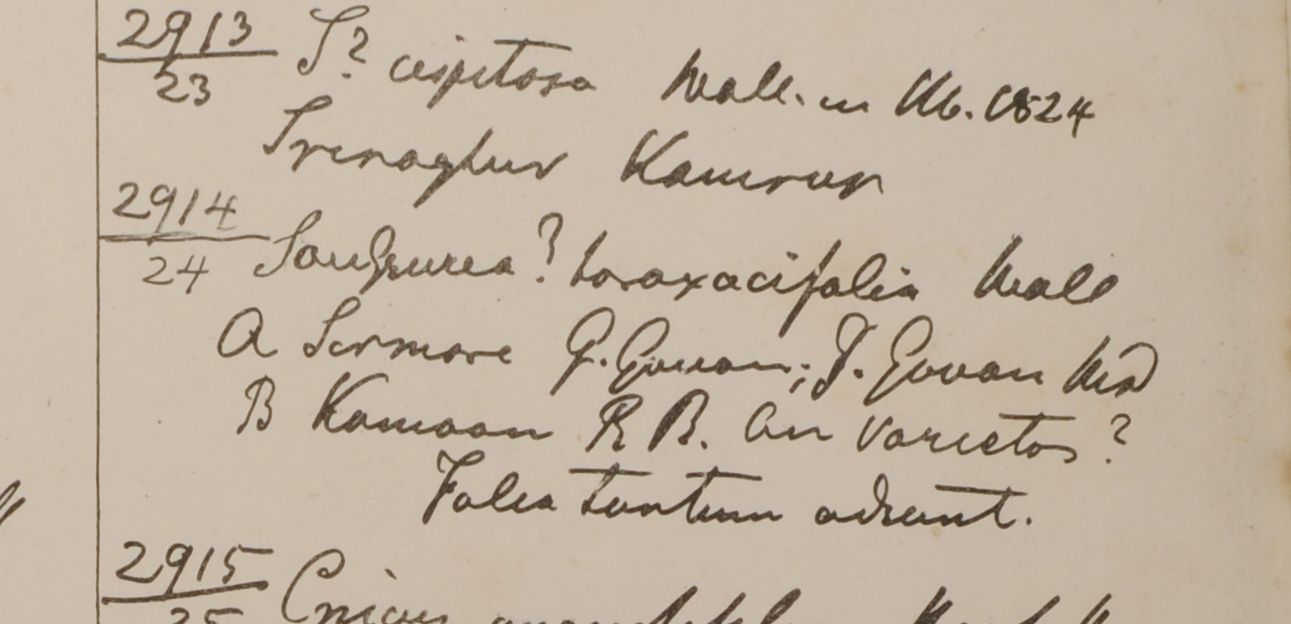 2913 S? cispitosa Wall. in Hb. 1824
23
Srenaghur Kamroop
2914
24 Saussurea? taraxacifolia Wall
A Sirmore G. Govan; J. Govan
B Kamaon R B. An varietas?
Folia tantum adsunt.
2915 Cnicus
25